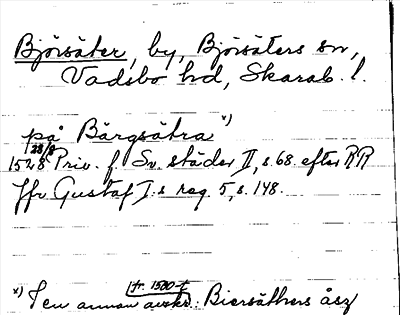 Björsäter, by, Björsäters sn,
Vadsbo hd, Skarab. l.
på Bärgsätra x)
28/8
1528 Priv. f. Sv. städer II, s. 68. efter RR
Jfr Gustaf I:s reg. 5, s. 148.
fr. 1500-t
x) I en annan avskr.: Biersäthers åsz